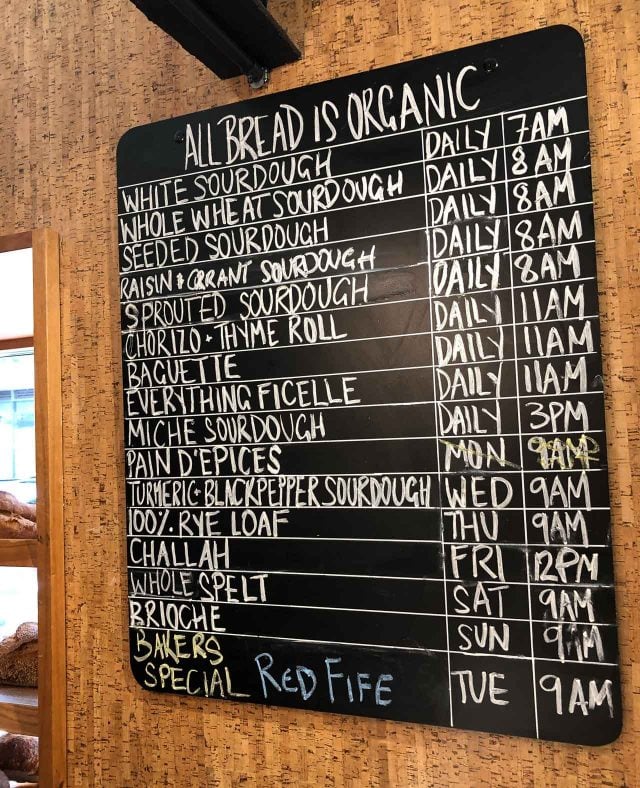 ALL BREAD IS ORGANIC
WHITE SOURDOUGH DAILY 7AM
WHOLE WHEAT SOURDOUGH DAILY 8AM
SEEDED SOURDOUGH DAILY 8AM
RAISIN & CURRANT SOURDOUGH DAILY 8AM
SPROUTED SOURDOUGH DAILY 8AM
CHORIZO + THYME ROLL DAILY 11AM
BAGUETTE DAILY 11AM
EVERYTHING FICELLE DAILY 11AM
MICHE SOURDOUGH DAILY 3PM
PAIN D'EPICES MON 9AM
TURMERIC-BLACKPEPPER SOURDOUGH WED 9AM
100% RYE LOAF THU 9AM
CHALLAH FRI 12PM
WHOLE SPELT SAT 9AM
BRIOCHE SUN 9AM
BAKERS
SPECIAL RED FIFE TUE 9AM